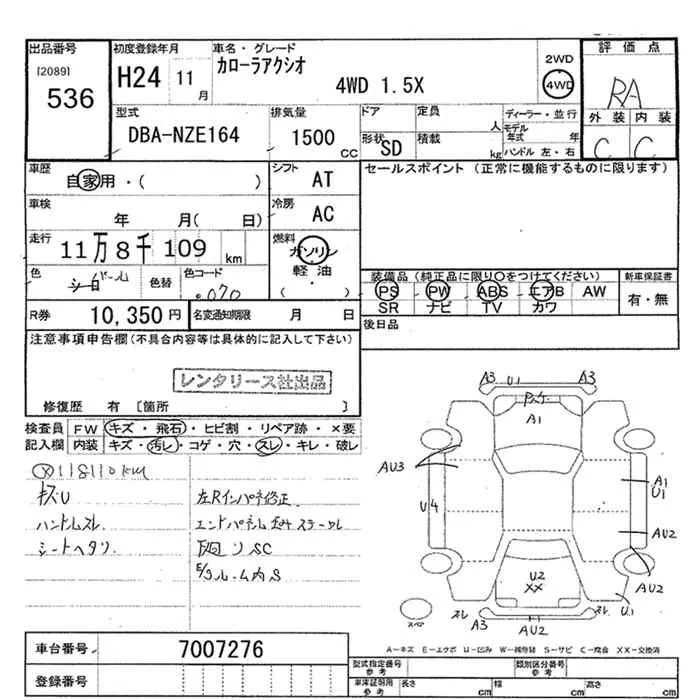 出品番号 初度登録年月 車名・グレード 評価点
[2089] 536 H24 11月 カローラアクシオ 4WD 1.5X 2WD 4WD RA
型式 排気量 ドア 定員 ディーラー・並行 外装 内装
DBA-NZE164 1500cc 人 モデル年式 年 C C
形状 SD 積載 kg ハンドル 左・右
車歴 自家用・( ) シフト AT セールスポイント(正常に機能するものに限ります)
車検 年 月( 日) 冷房 AC
走行 11万8千109km 燃料 ガソリン 軽油 ・ ( )
色 シロパール 色替 色コード 070 装備品(純正品に限り○をつけてください) 新車保証書
PS PW ABS エアB AW 有・無
SR ナビ TV カワ
R券 10,350円 名変通知期限 月 日 後日品
注意事項申告欄(不具合内容等は具体的に記入して下さい)
レンタリース社出品
修復歴 有 [箇所 ]
検査員 FW キズ・飛石・ヒビ割・リペア跡・×要
記入欄 内装 キズ・汚レ・コゲ・穴・スレ・キレ・破レ
118110KM
キズU 左Rインパネ修正
ハンドルスレ
シートヘタリ 下廻りSC
A3 U1 A3
A1
AU3
A1
U1
U4
AU2
U2
XX
AU2
スレ スレ U1
A3 AU2
A-キズ E-エクボ U-凹み W-補修跡 S-サビ C-腐食 XX-交換済
車台番号 7007276 型式指定番号 参考 類別区分番号 参考
登録番号 車庫証明用 参考 長さ cm 幅 cm 高さ cm